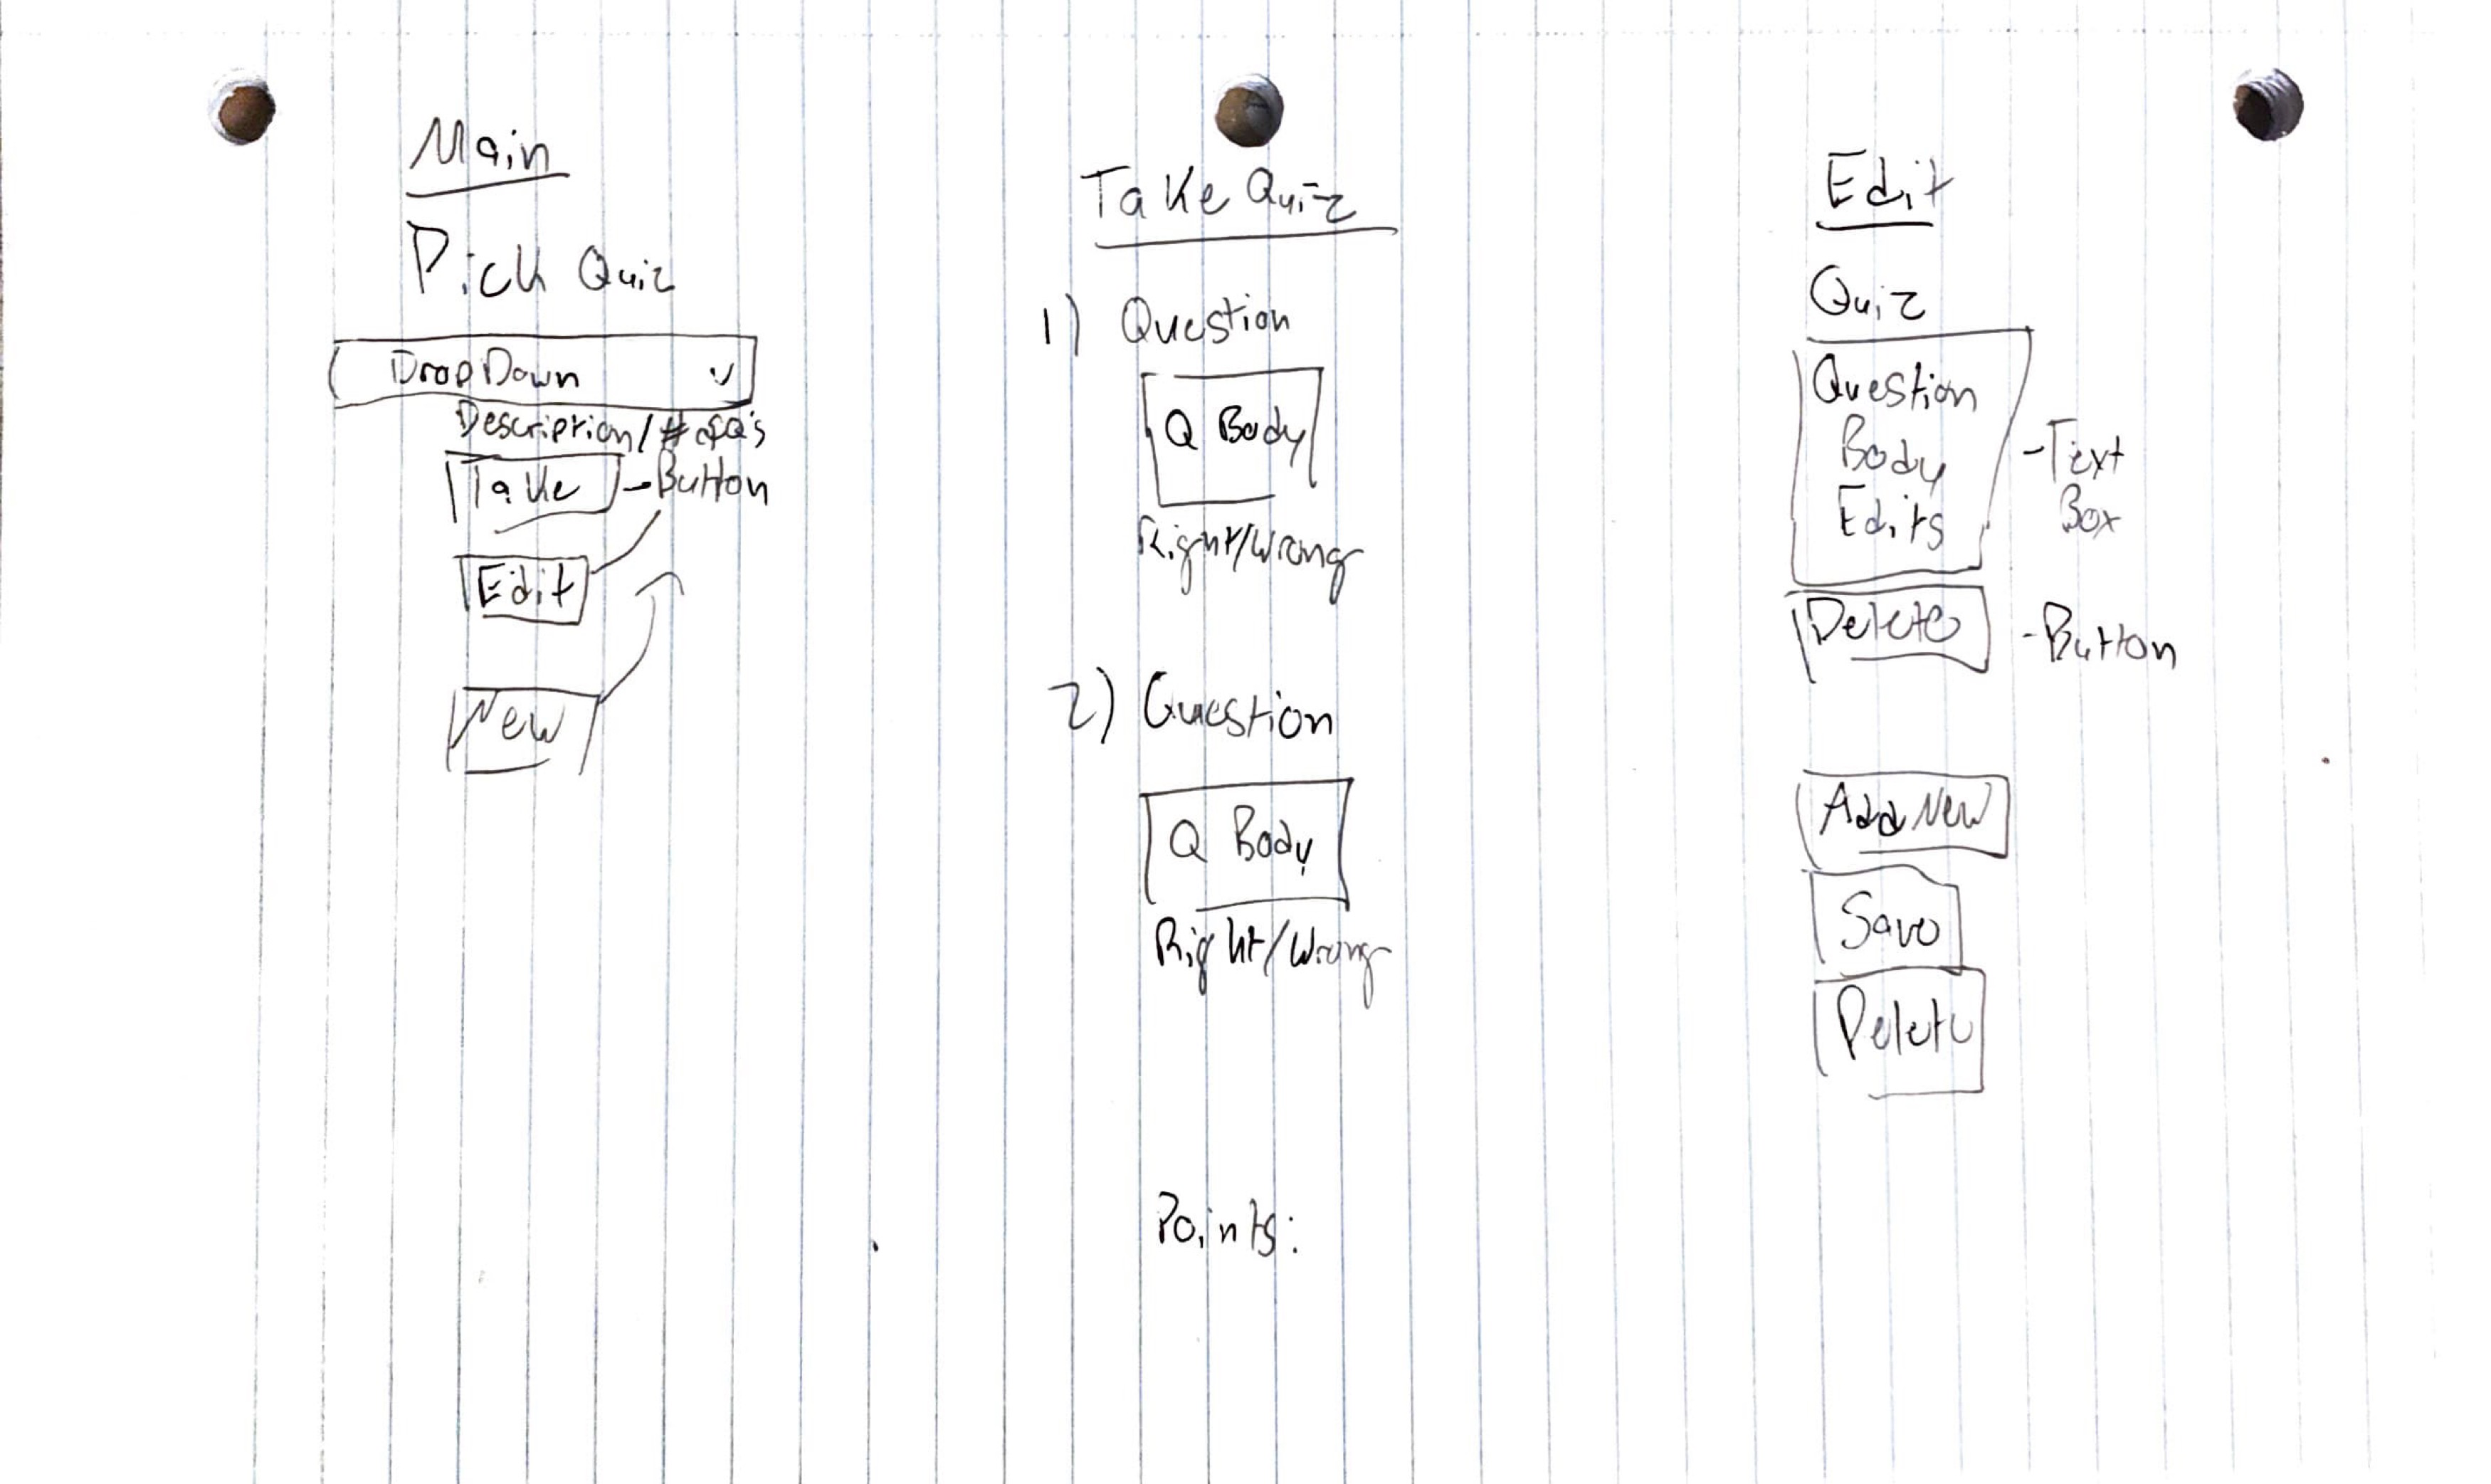 Main
Pick Quiz
DropDown
Description/# of Q's
Take - Button
Edit
New
Take Quiz
1) Question
Q Body
Right/Wrong
2) Question
Q Body
Right/Wrong
Points:
Edit
Quiz
Question
Body
Edits
- Text
Box
Delete - Button
Add New
Save
Delete